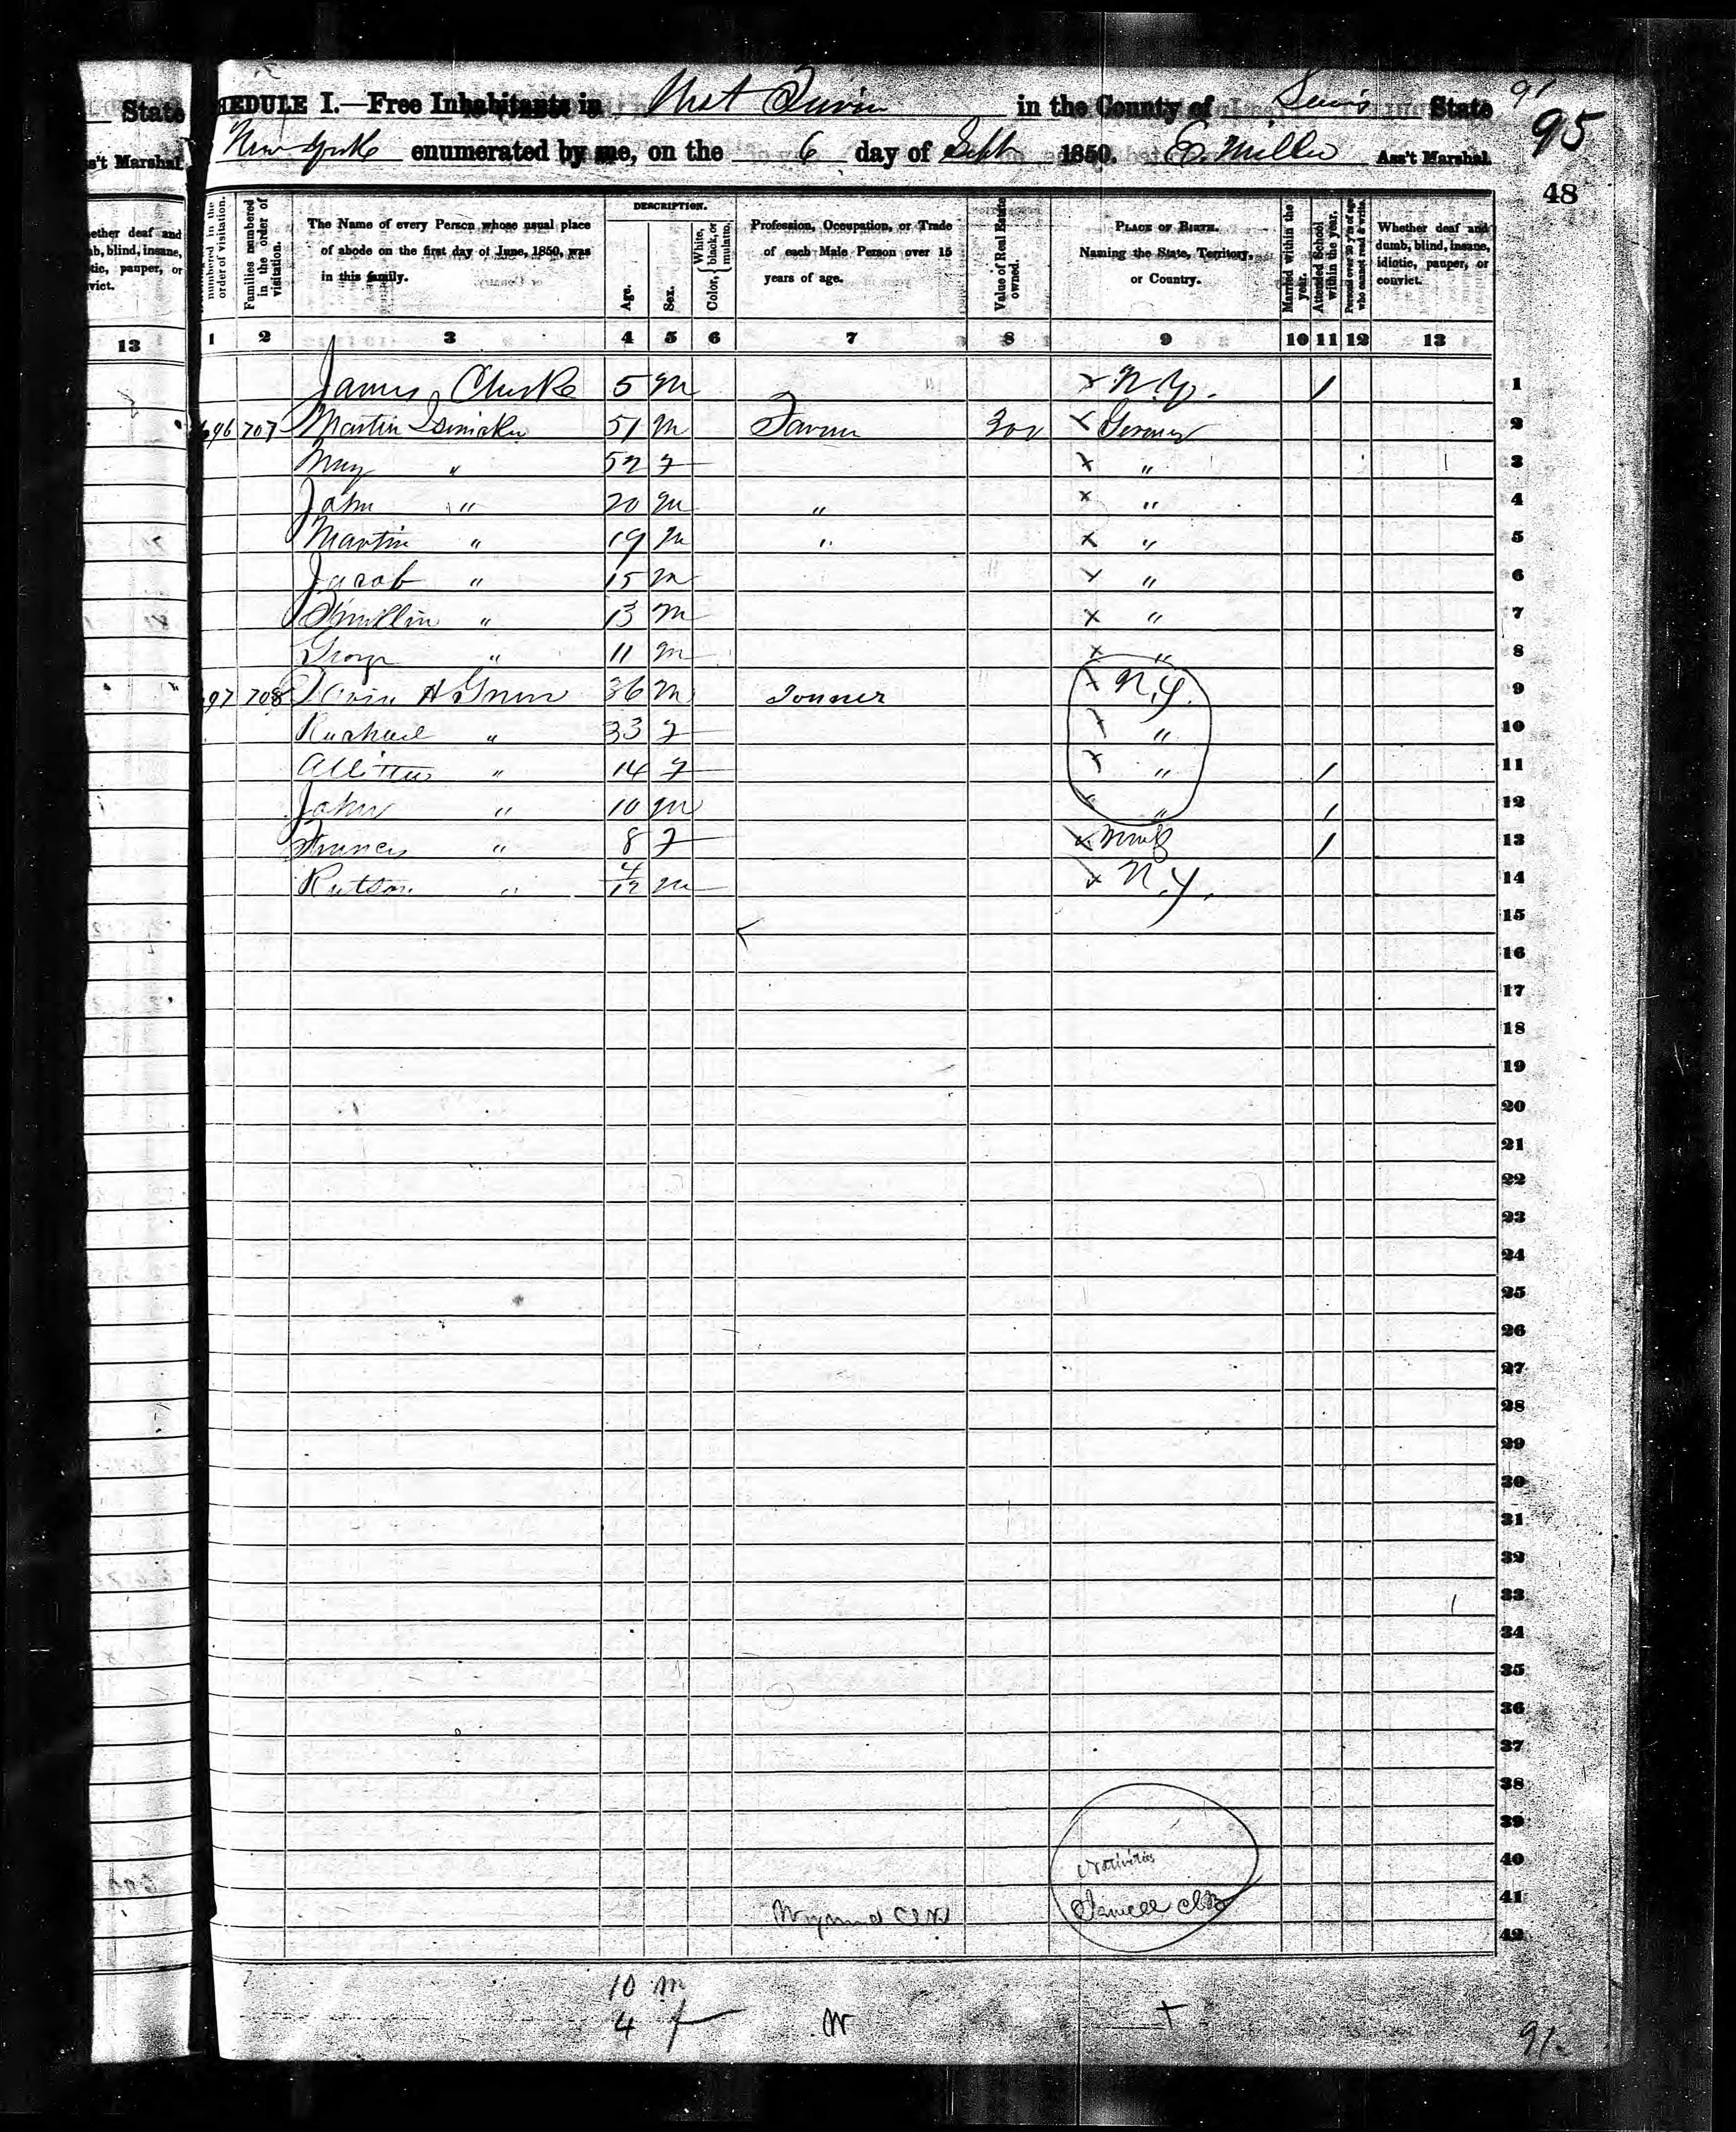 State
s't Marshal
ether deaf and
b, blind, insane,
tic, pauper, or
vict.
13
91
HEDULE I.—Free Inhabitants in West Turin in the County of Lewis State
95
New York enumerated by me, on the 6 day of Sept 1850. E. Miller Ass't Marshal.
48
numbered in the order of visitation.
Families numbered in the order of visitation.
The Name of every Person whose usual place of abode on the first day of June, 1850, was in this family.
DESCRIPTION.
Age.
Sex.
Color, { White, black, or mulatto.
Profession, Occupation, or Trade of each Male Person over 15 years of age.
Value of Real Estate owned.
PLACE OF BIRTH. Naming the State, Territory, or Country.
Married within the year.
Attended School within the year.
Persons over 20 y'rs of age who cannot read & write.
Whether deaf and dumb, blind, insane, idiotic, pauper, or convict.
1 2 3 4 5 6 7 8 9 10 11 12 13
James 5 m x N.Y. / 1
696 707 Martin 51 m 300 x Germany 2
Mary " 52 f x " 3
John " 20 m " x " 4
Martin " 19 m " x " 5
Jacob " 15 m x " 6
" 13 m x " 7
George " 11 m x " 8
697 708 H 36 m x N.Y. 9
Rachael " 33 f x " 10
" 14 f x " / 11
John " 10 m x " / 12
Frances " 8 f x / 13
" 4/12 m x N.Y. 14
15
16
17
18
19
20
21
22
23
24
25
26
27
28
29
30
31
32
33
34
35
36
37
38
39
Nativities 40
41
42
10 m
4 f W +
91